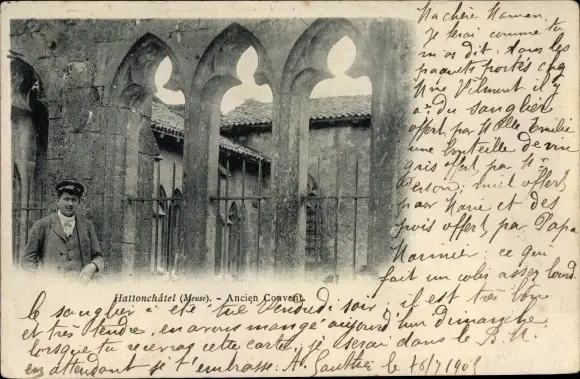 Ma chère Maman,
Je ferai comme tu
m'as dit. Dans les
paquets portés chez
Mme Vilmont il y
a du sanglier
offert par Melle Emilie
une bouteille de vin
gris offert par Mr
Person, miel offert
par Marie et des
pois offert par Papa
Marmier, ce qui
fait un colis assez lourd.
Hattonchâtel (Meuse). - Ancien Couvent.
le sanglier a été tué Vendredi soir, il est très bon
et très tendre, en avons mangé aujourd'hui dimanche
lorsque tu recevras cette carte, je serai dans le
en attendant je t'embrasse. A. Gauthier le 16/7/1905